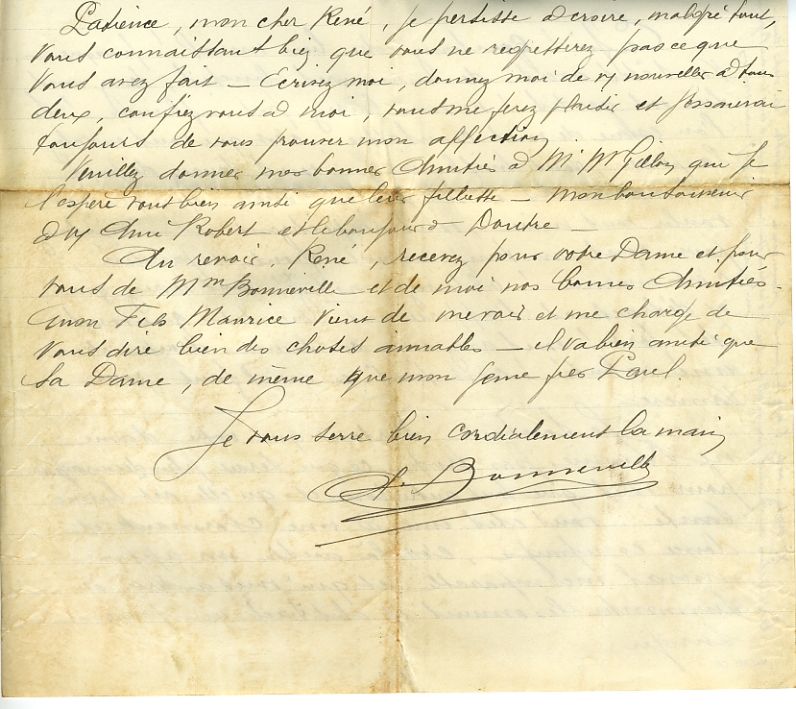 Patience, mon cher René, je persiste à croire, malgré tout,
vous connaissant bien que vous ne regretterez pas ce que
vous avez fait — Ecrivez moi, donnez moi de vos nouvelles à tous
deux, confiez vous à moi, vous me ferez plaisir et j'essaierai
toujours de vous prouver mon affection.
Veuillez donner mes bonnes Amitiés à Mr Mme qui je
l'espère vont bien ainsi que leur fillette — mon bon souvenir
Robert et le bonjour à
Au revoir, René, recevez pour votre Dame et pour
vous de Mme Bonneville et de moi nos bonnes Amitiés.
Mon Fils Maurice vient de me voir et me charge de
vous dire bien des choses aimables — il va bien ainsi que
sa Dame, de même que mon jeune Paul.
Je vous serre bien cordialement la main,
A. Bonneville